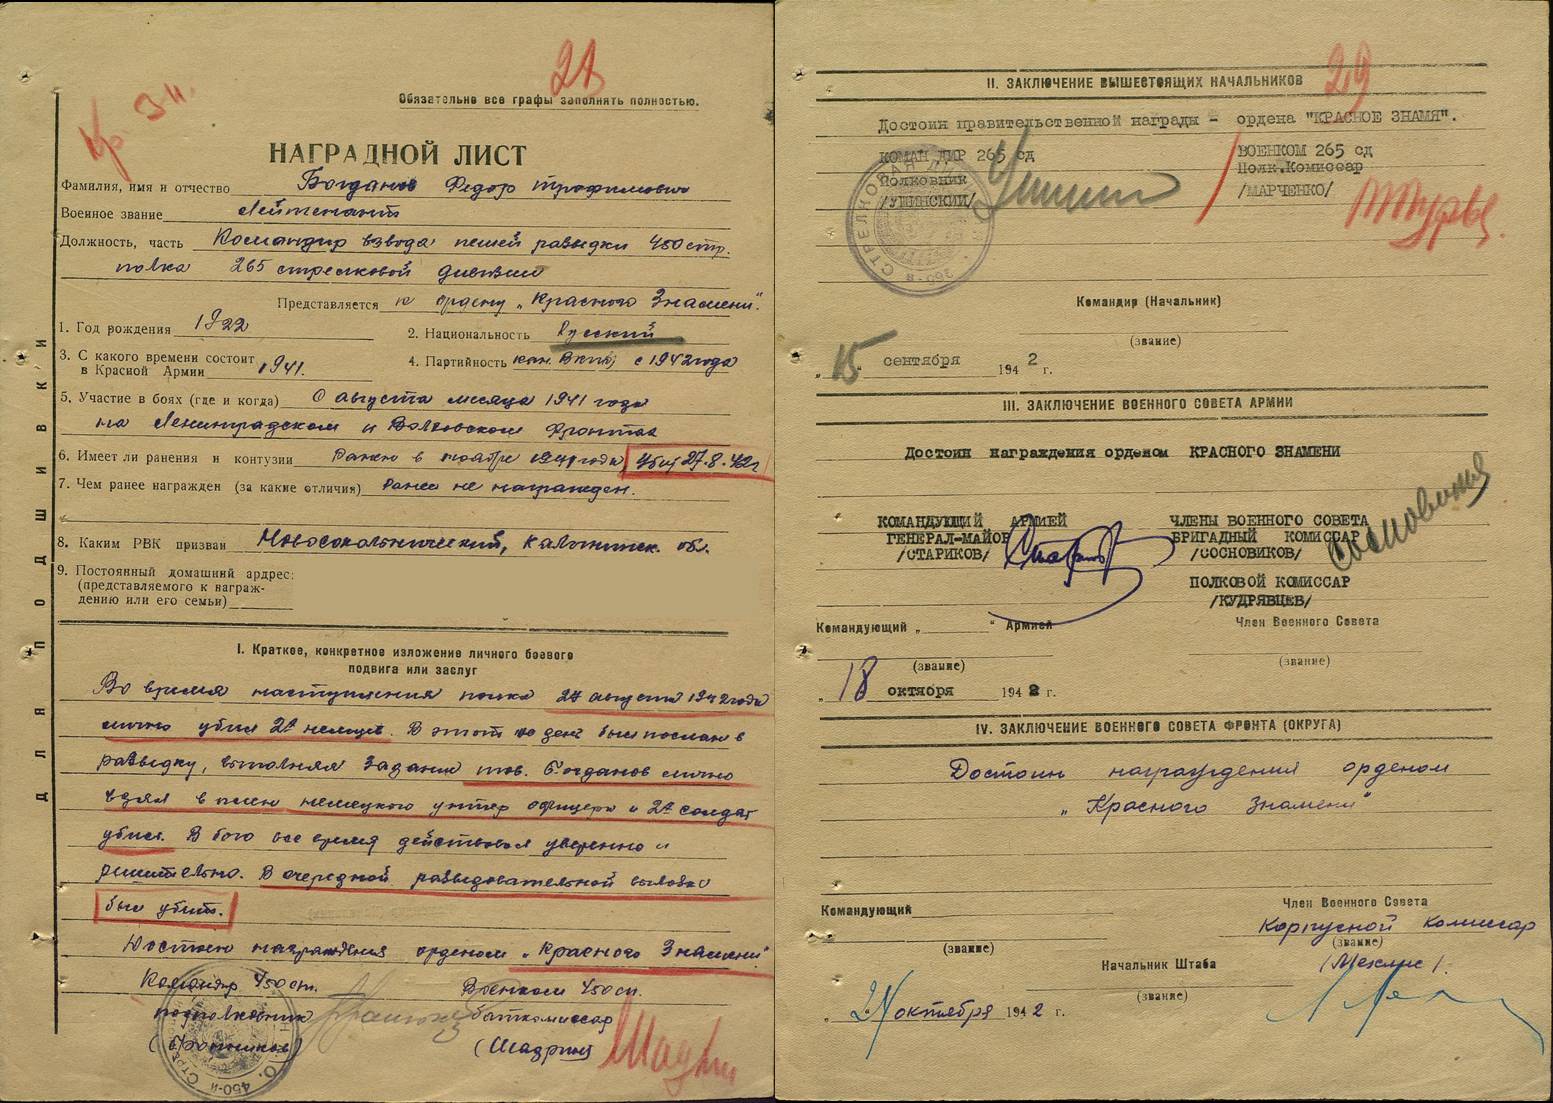 28
Кр Зн.
Обязательно все графы заполнять полностью.
НАГРАДНОЙ ЛИСТ
Фамилия, имя и отчество Богданов Федор Трофимович
Военное звание Лейтенант
Должность, часть Командир взвода пешей разведки 450 стр.
полка 265 стрелковой дивизии
Представляется к ордену „Красного Знамени".
1. Год рождения 1922
2. Национальность Русский
3. С какого времени состоит
в Красной Армии 1941.
4. Партийность кан. ВКП(б) с 1942 года
5. Участие в боях (где и когда) С августа месяца 1941 года
на Ленинградском и Волховском фронтах
6. Имеет ли ранения и контузии Ранен в ноябре 1941 года, убит 27.8.42г
7. Чем ранее награжден (за какие отличия) Ранее не награжден.
8. Каким РВК призван Новосокольнический, Калининск. обл.
9. Постоянный домашний ардрес:
(представляемого к награж-
дению или его семьи)
ДЛЯ ПОДШИВКИ
I. Краткое, конкретное изложение личного боевого
подвига или заслуг
Во время наступления полка 27 августа 1942 года
лично убил 2х немцев. В этот же день был послан в
разведку, выполняя задание тов. Богданов лично
взял в плен немецкого унтер офицера и 2х солдат
убил. В бою все время действовал уверенно и
решительно. В очередной разведовательной вылазке
был убит.
Достоин награждения орденом „Красного Знамени"
Командир 450 сп.
подполковник
Военком 450 сп.
баткомиссар
(Шадрин)
Шадрин
29
II. ЗАКЛЮЧЕНИЕ ВЫШЕСТОЯЩИХ НАЧАЛЬНИКОВ
Достоин правительственной награды - ордена "КРАСНОЕ ЗНАМЯ".
КОМАНДИР 265 сд
Полковник
/УШИНСКИЙ/
ВОЕНКОМ 265 сд
Полк.Комиссар
/МАРЧЕНКО/
Командир (Начальник)
(звание)
„15" сентября 1942 г.
III. ЗАКЛЮЧЕНИЕ ВОЕННОГО СОВЕТА АРМИИ
Достоин награждения орденом КРАСНОГО ЗНАМЕНИ
КОМАНДУЮЩИЙ АРМИЕЙ
ГЕНЕРАЛ-МАЙОР
/СТАРИКОВ/
ЧЛЕНЫ ВОЕННОГО СОВЕТА
БРИГАДНЫЙ КОМИССАР
/СОСНОВИКОВ/
ПОЛКОВОЙ КОМИССАР
/КУДРЯВЦЕВ/
Командующий „ " Армией
Член Военного Совета
(звание)
(звание)
„18 октября 1942 г.
IV. ЗАКЛЮЧЕНИЕ ВОЕННОГО СОВЕТА ФРОНТА (ОКРУГА)
Достоин награждения орденом
„Красного Знамени"
Командующий
(звание)
Член Военного Совета
Корпусной комиссар
(звание)
/Мехлис/.
Начальник Штаба
(звание)
октября 1942 г.